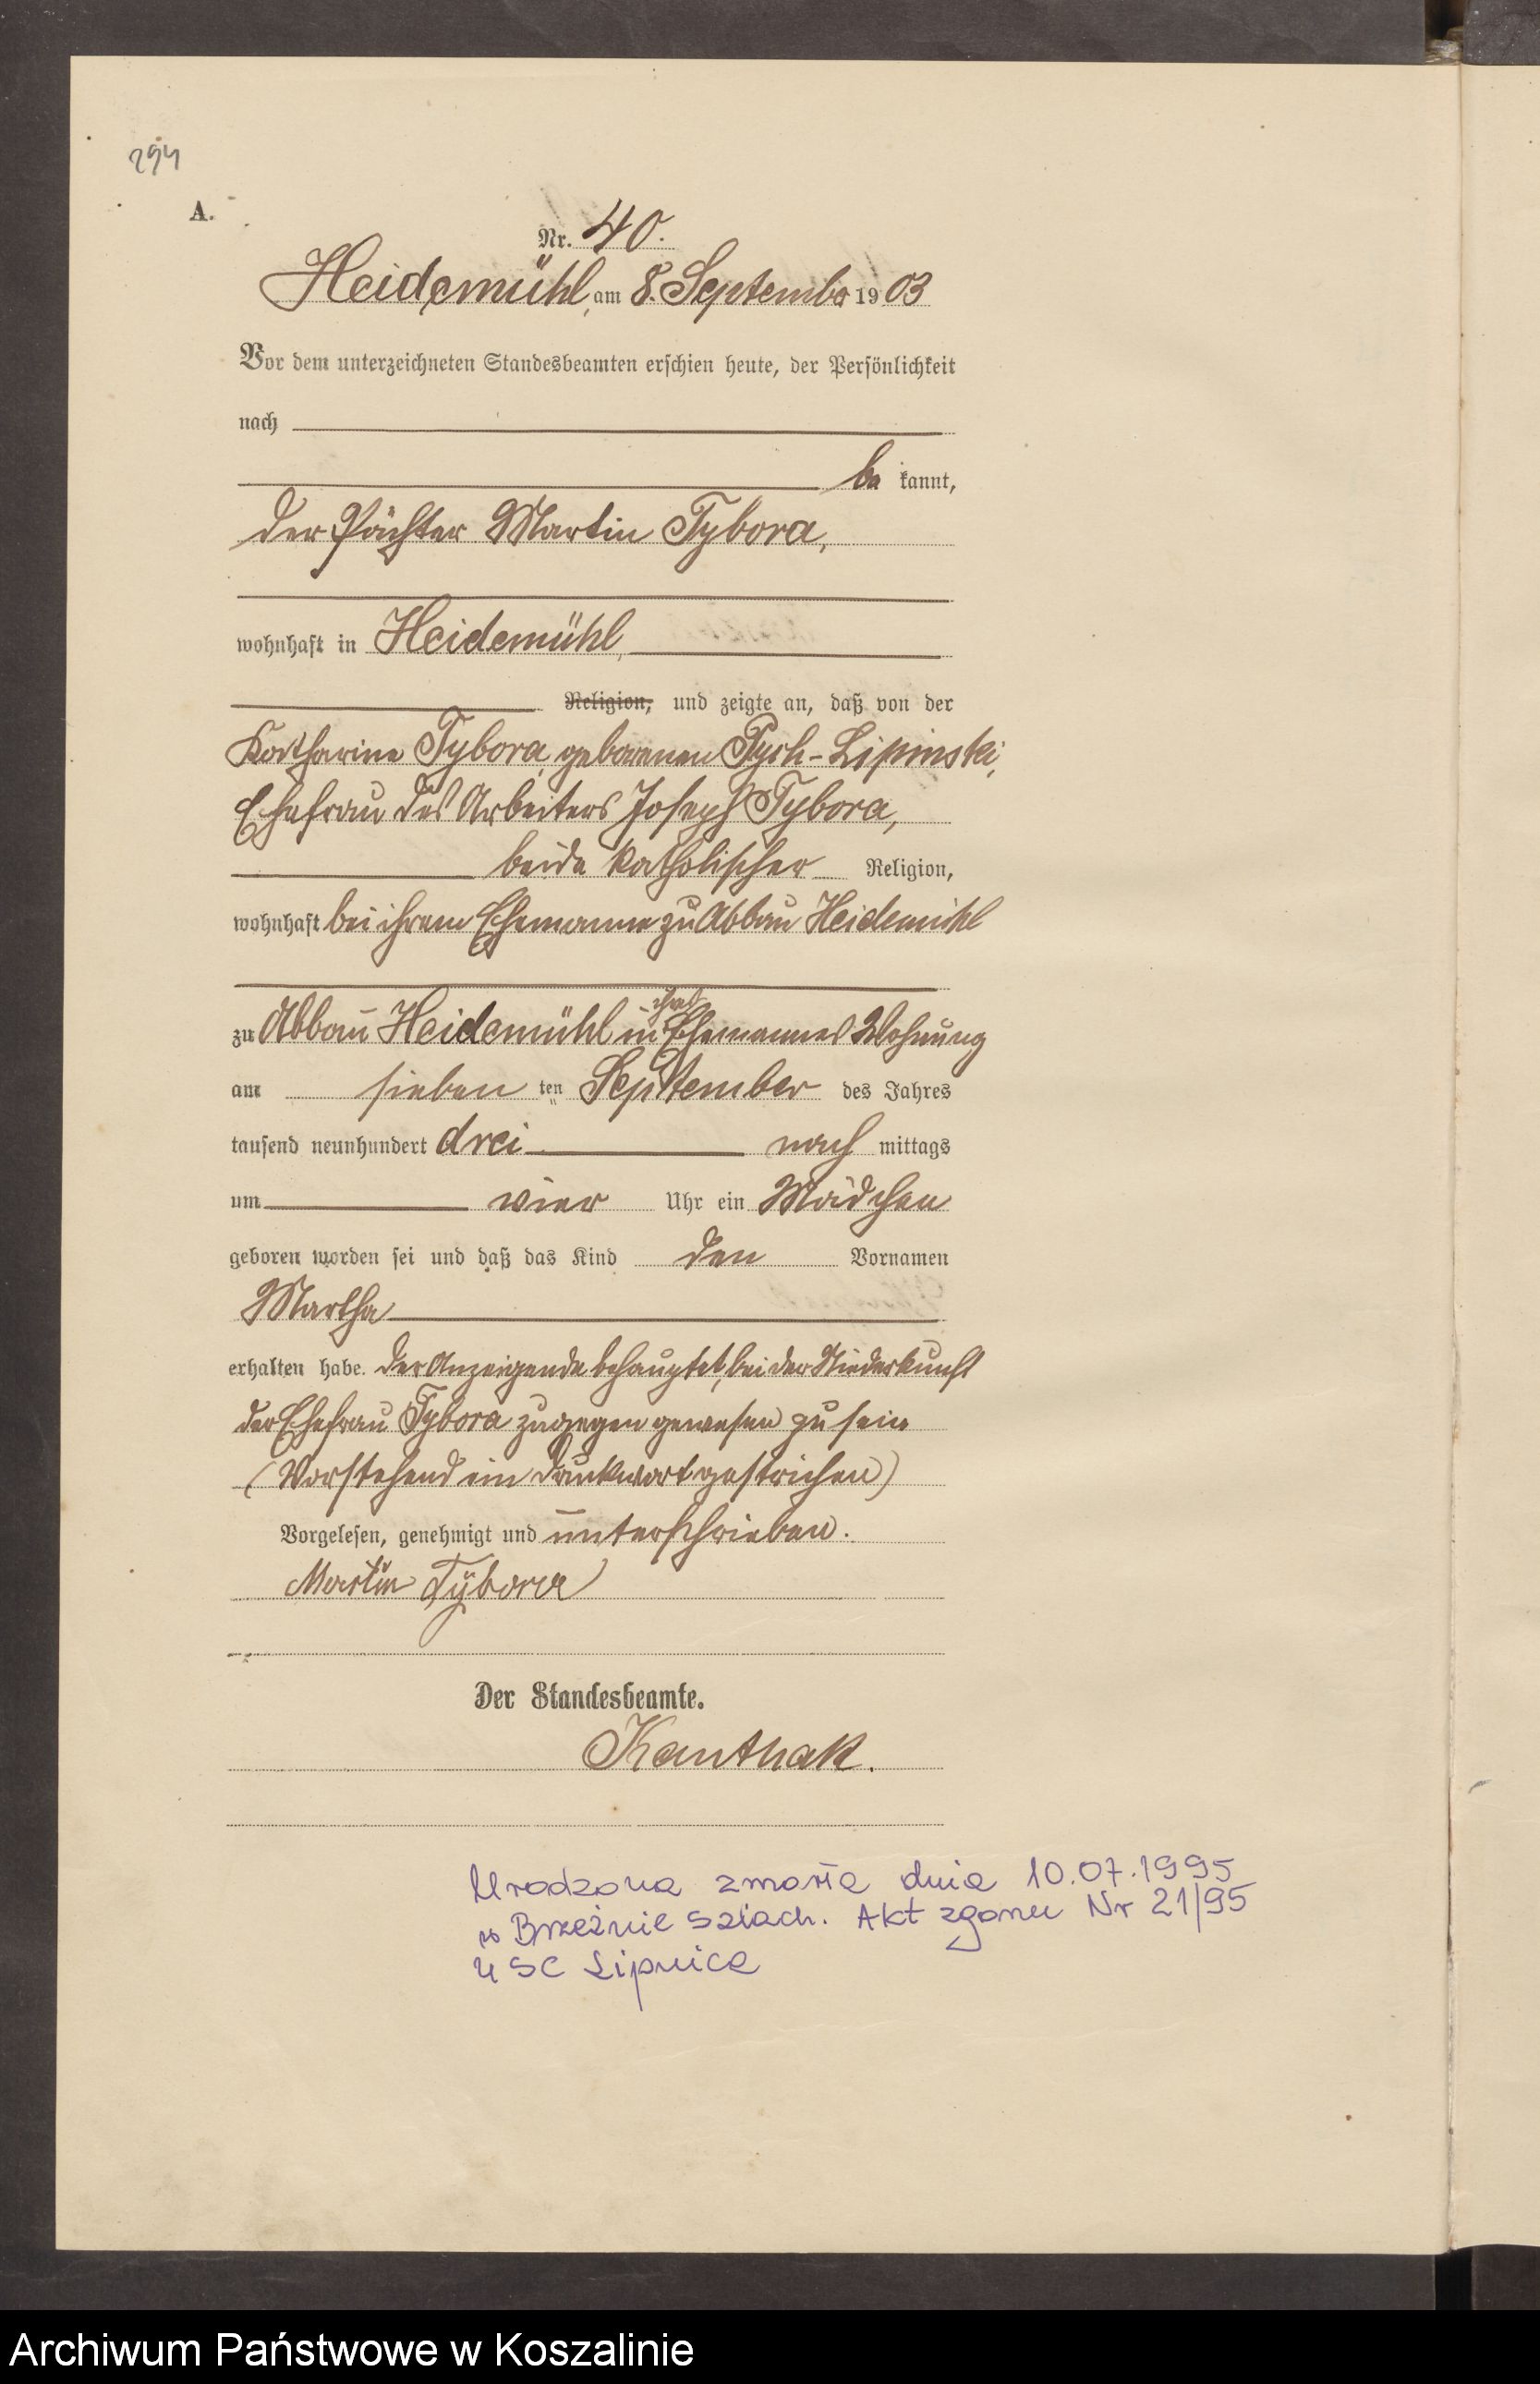 294
A.
Nr. 40.
Heidemühl, am 8. September 1903
Vor dem unterzeichneten Standesbeamten erschien heute, der Persönlichkeit
nach
be kannt,
der Pächter Martin Tybora,
wohnhaft in Heidemühl,
Religion, und zeigte an, daß von der
Katharine Tybora, geborenen Pych-Lipinski,
Ehefrau des Arbeiters Joseph Tybora,
beide katholischer Religion,
wohnhaft bei ihrem Ehemanne zu Abbau Heidemühl
zu Abbau Heidemühl in ihres Ehemannes Wohnung
am sieben ten September des Jahres
tausend neunhundert drei nach mittags
um vier Uhr ein Mädchen
geboren worden sei und daß das Kind den Vornamen
Martha
erhalten habe. Der Anzeigende behauptet, bei der Niederkunft
der Ehefrau Tybora zugegen gewesen zu sein
(Vorstehend ein Druckwort gestrichen)
Vorgelesen, genehmigt und unterschrieben.
Martin Tybora
Der Standesbeamte.
Kanthak.
Urodzona zmarła dnia 10.07.1995
w Brzeźnie Szlach. Akt zgonu Nr 21/95
USC Lipnica
Archiwum Państwowe w Koszalinie